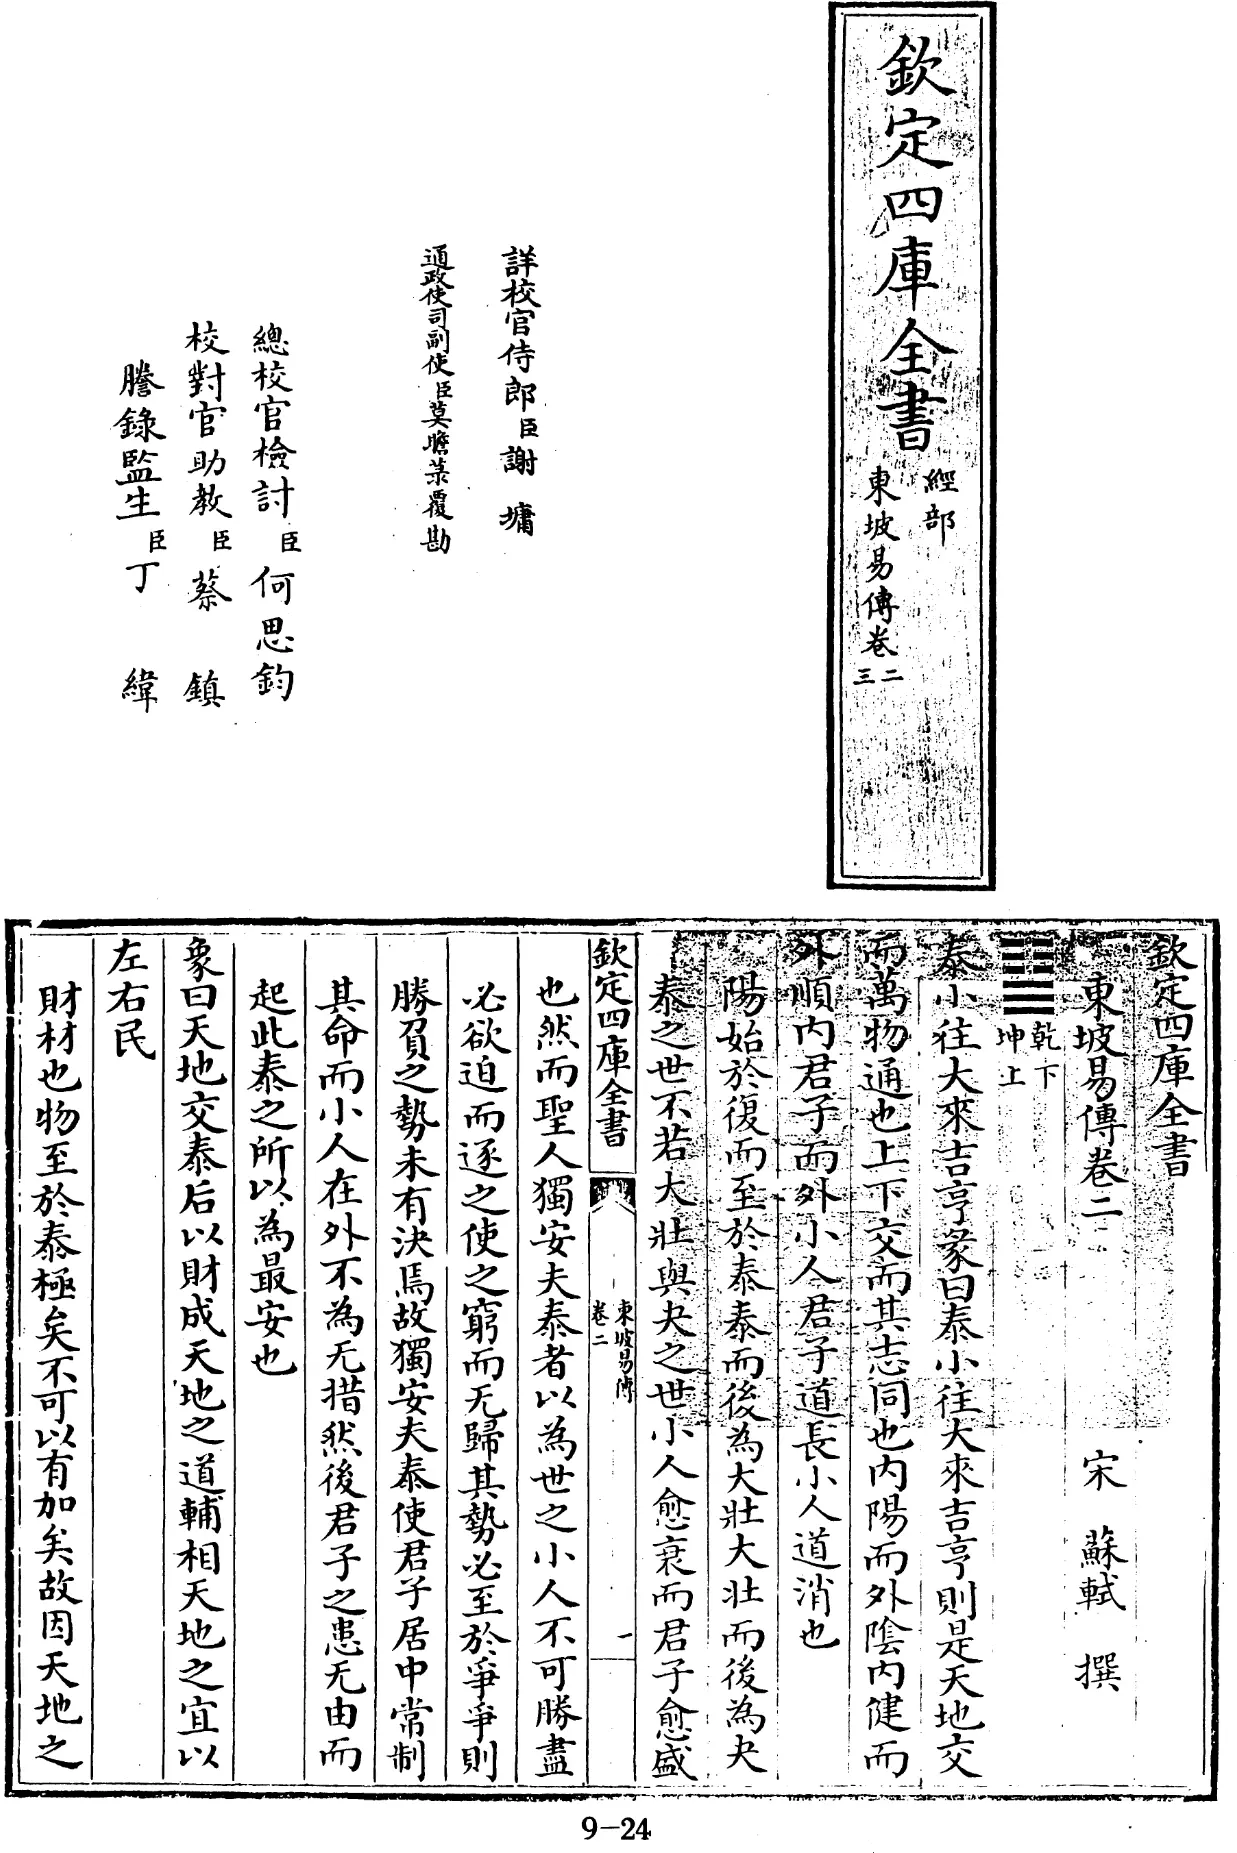 欽定四庫全書
經部
東坡易傳卷二
三
詳校官侍郎臣謝墉
通政使司副使臣莫瞻菉覆勘
總校官檢討臣何思鈞
校對官助教臣蔡鎮
謄錄監生臣丁緯
欽定四庫全書
東坡易傳卷二 宋 蘇軾 撰
乾下
坤上
泰小往大來吉亨彖曰泰小往大來吉亨則是天地交
而萬物通也上下交而其志同也内陽而外陰内健而
外順内君子而外小人君子道長小人道消也
陽始於復而至於泰泰而後為大壯大壯而後為夬
泰之世不若大壯與夬之世小人愈衰而君子愈盛
欽定四庫全書
東坡易傳
卷二
一
也然而聖人獨安夫泰者以為世之小人不可勝盡
必欲迫而逐之使之窮而无歸其勢必至於爭爭則
勝負之勢未有決焉故獨安夫泰使君子居中常制
其命而小人在外不為无措然後君子之患无由而
起此泰之所以為最安也
象曰天地交泰后以財成天地之道輔相天地之宜以
左右民
財材也物至於泰極矣不可以有加矣故因天地之
9-24